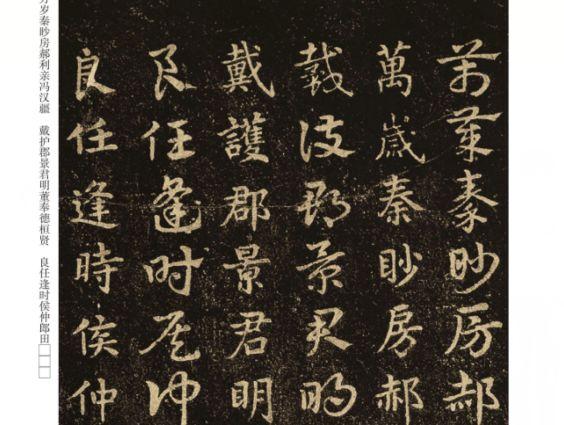 萬歲秦眇房郝
萬歲秦眇房郝
戴護郡景君明
戴護郡景君明
良任逢時侯仲
良任逢時侯仲
岁秦眇房郝利亲冯汉疆　戴护郡景君明董奉德桓贤　良任逢时侯仲郎田□□